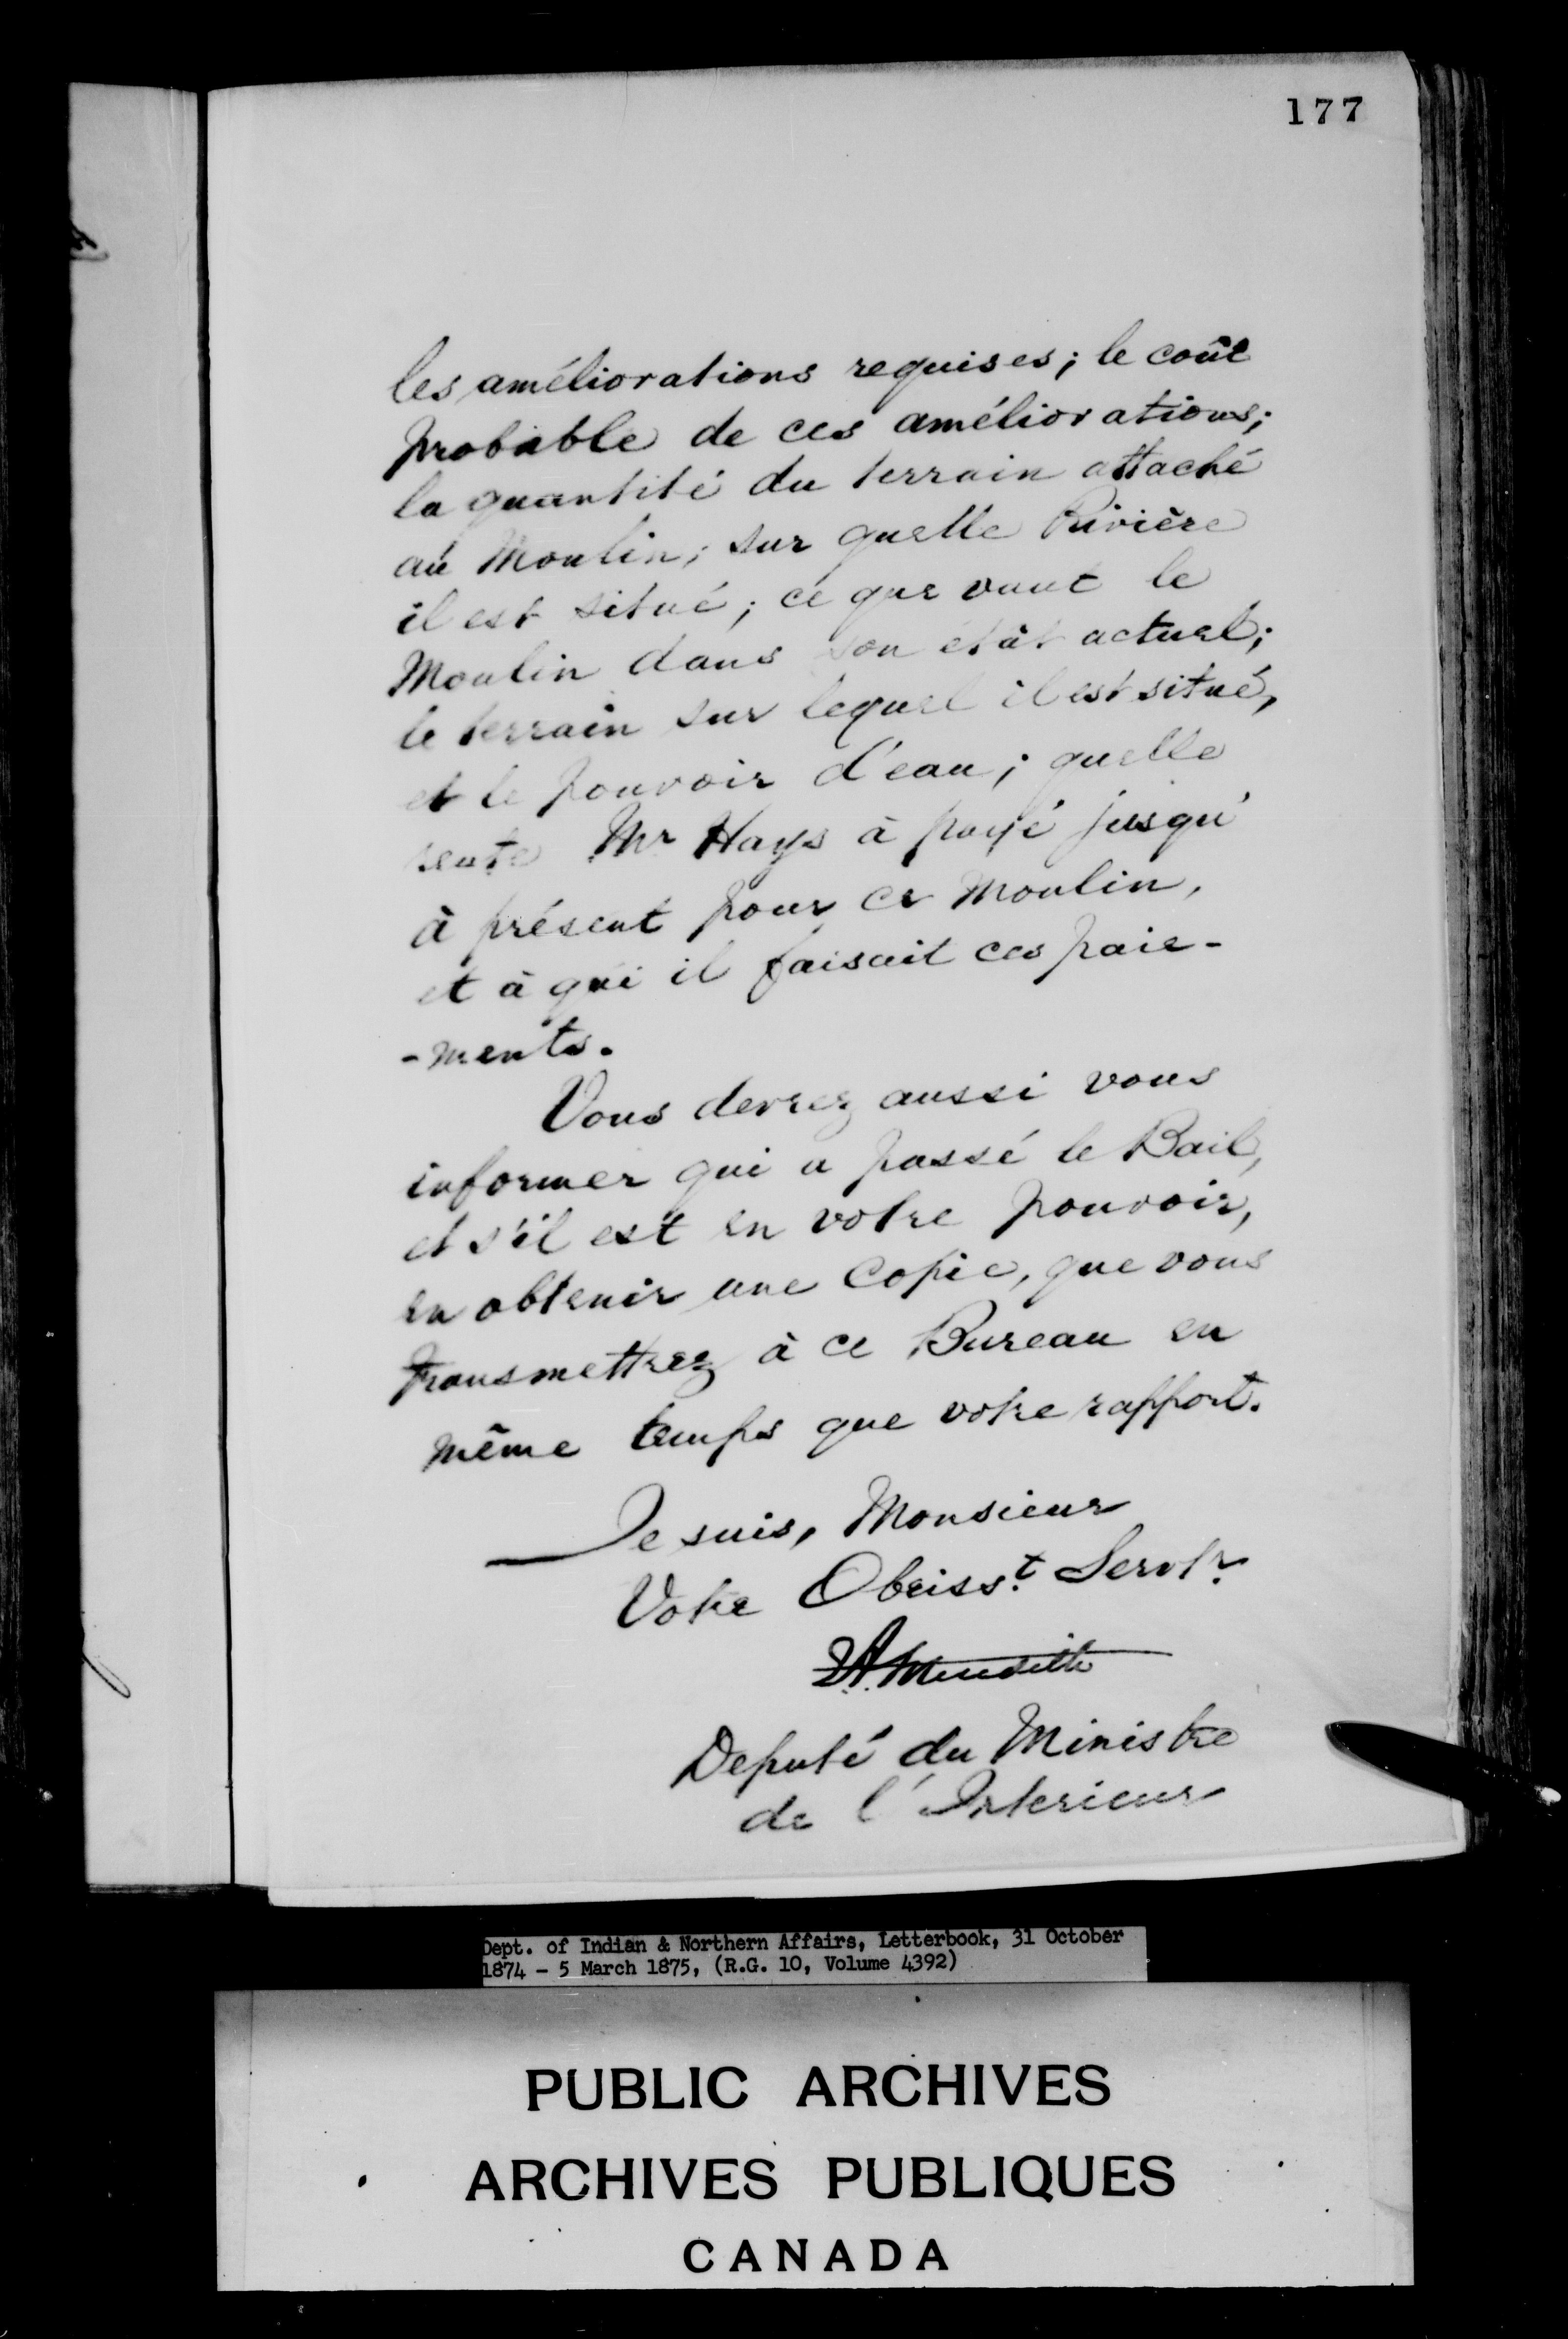 177
les améliorations requises; le coût
probable de ces améliorations;
la quantité du terrain attaché
au Moulin; sur quelle Rivière
il est situé; ce que vaut le
Moulin dans son étât actuel;
le terrain sur lequel il est situé,
et le pouvoir d'eau; quelle
rente Mr Hays à payé jusqu'
à présent pour ce Moulin,
et à qui il faisait ces paie-
-ments.
Vous devrez aussi vous
informer qui a passé le Bail,
et s'il est en votre pouvoir,
en obtenir une Copie, que vous
transmettrez à ce Bureau en
même temps que votre rapport.
Je suis, Monsieur
Votre Obeisst. Servtr.
EA Meredith
Deputé du Ministre
de l'Interieur
Dept. of Indian & Northern Affairs, Letterbook, 31 October
1874 - 5 March 1875, (R.G. 10, Volume 4392)
PUBLIC ARCHIVES
ARCHIVES PUBLIQUES
CANADA